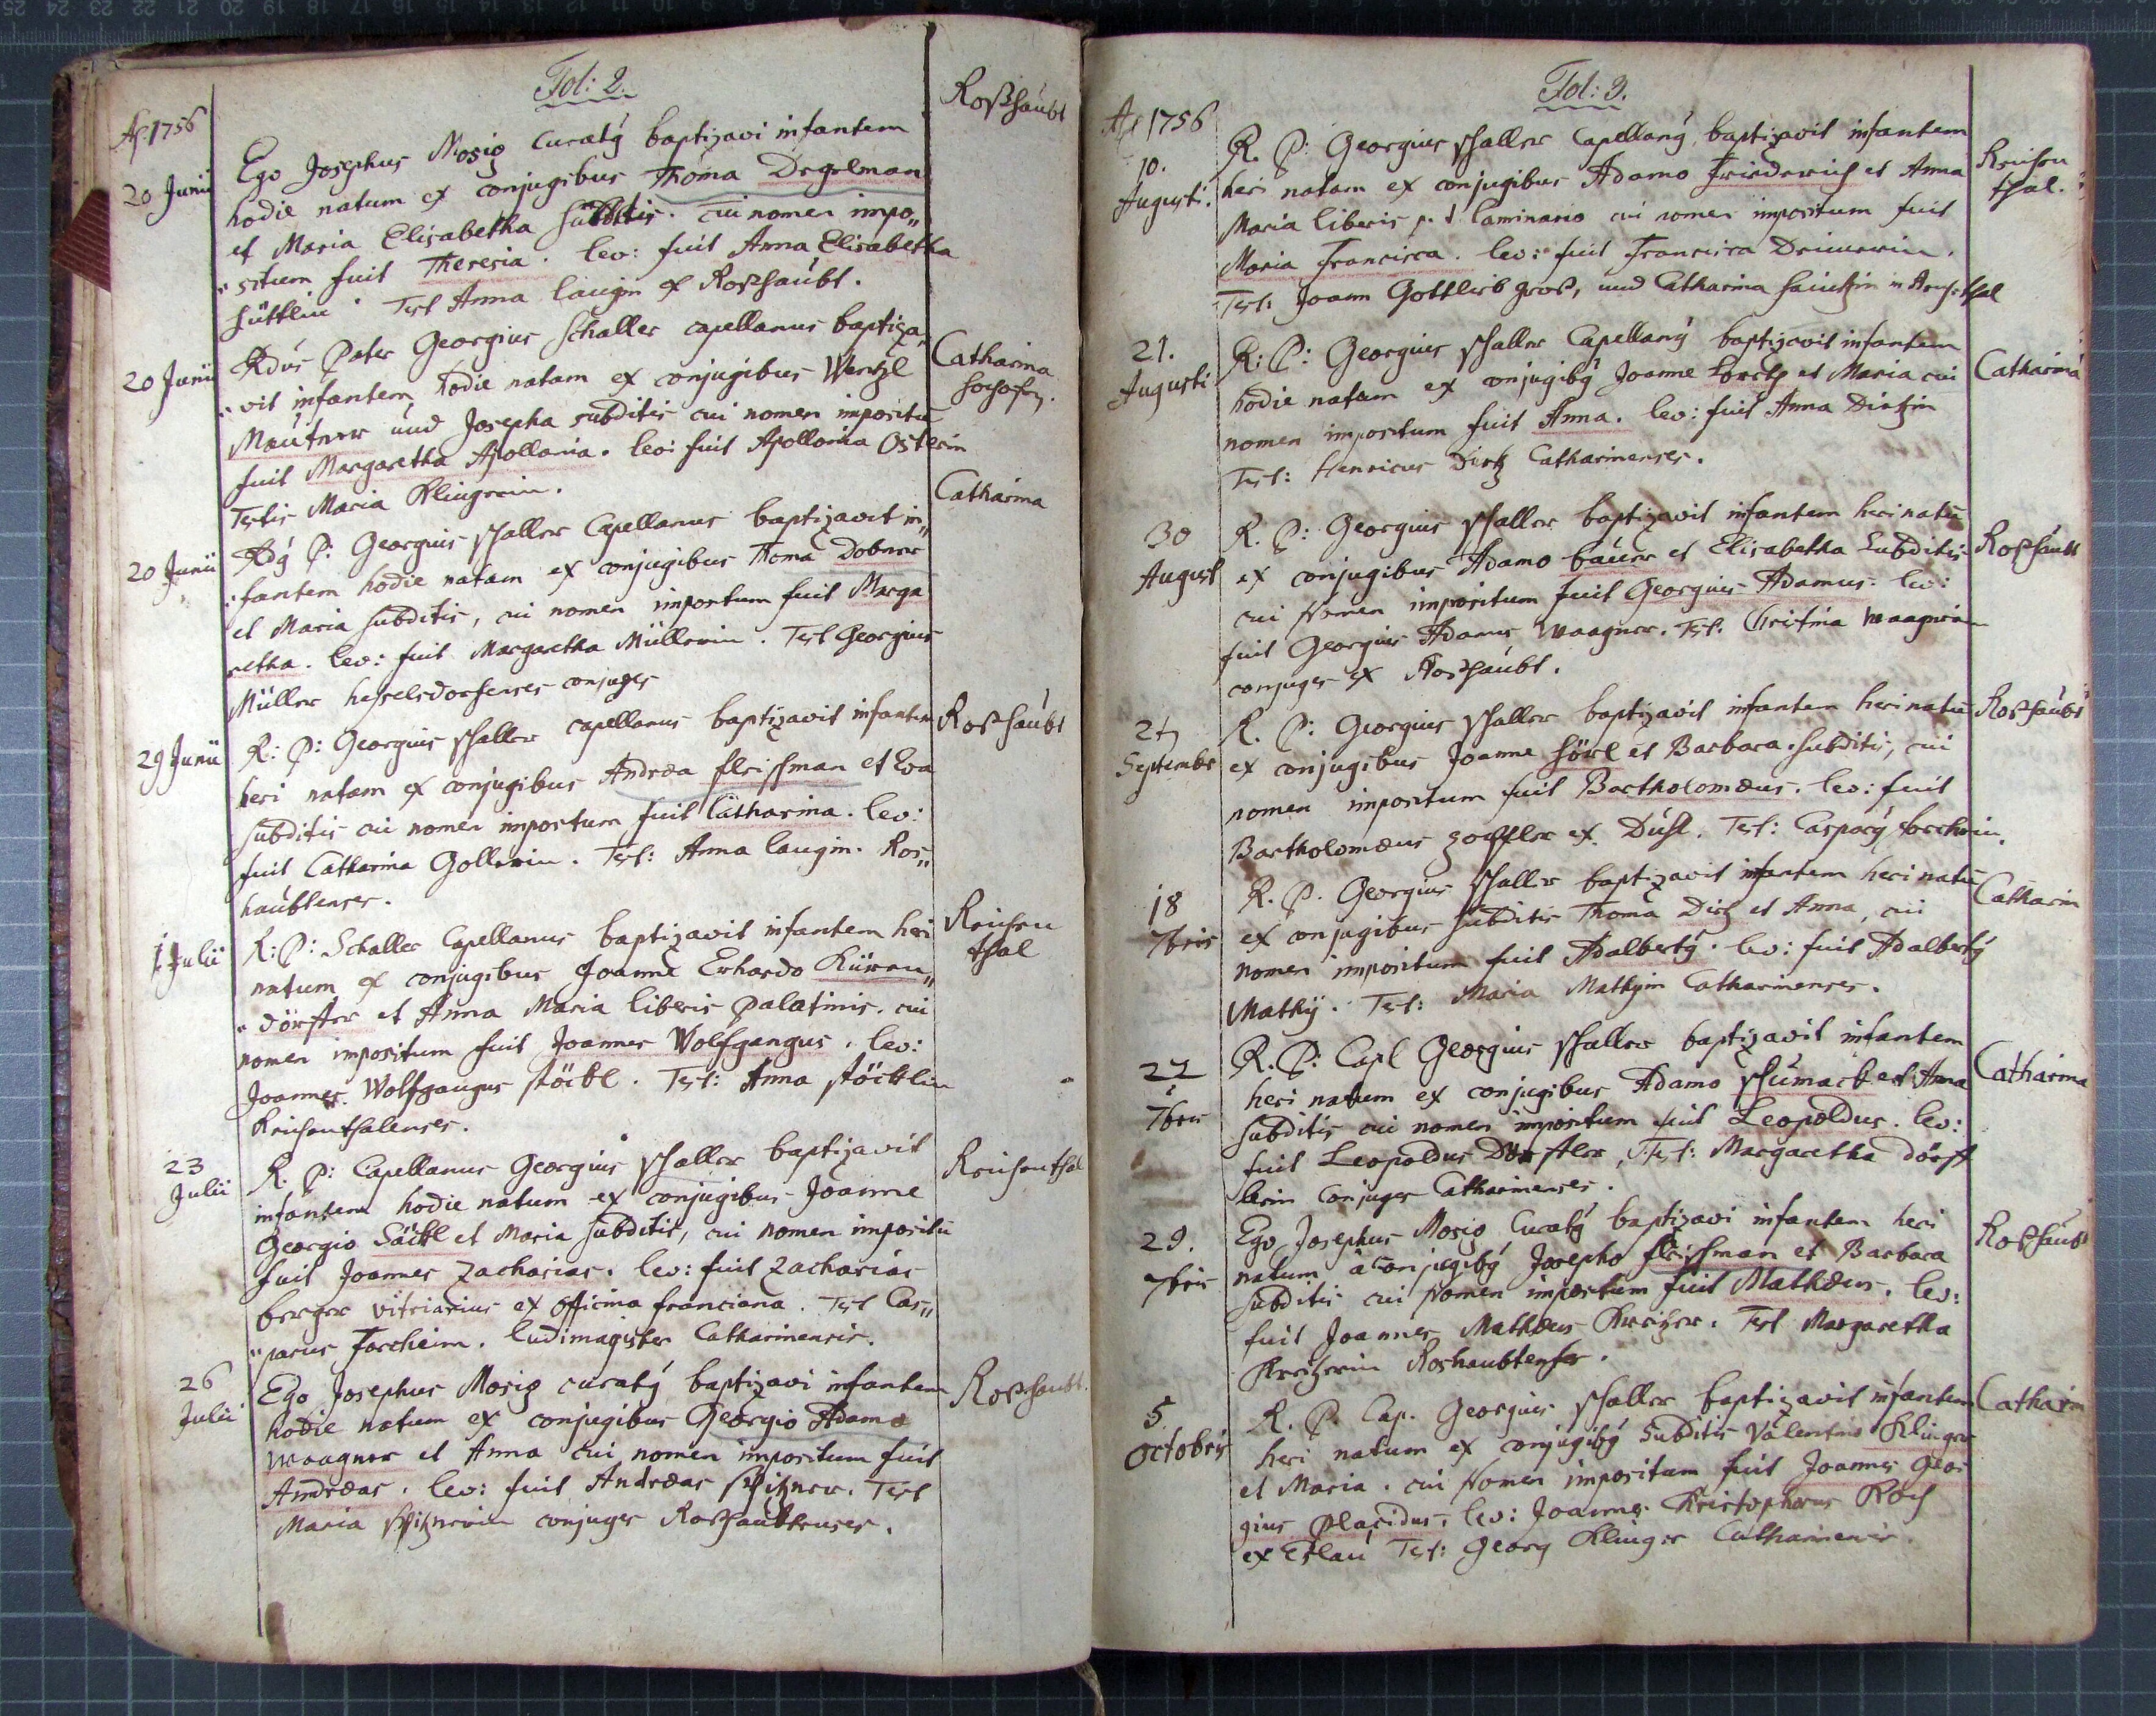 Fol: 2.
Aō 1756
Roßhaubt
20 Junii
Ego Josephus Mosig Curatꝰ baptizavi infantem
hodie natum ex conjugibus Thoma Degelman
et Maria Elisabetha subditis. cui nomen impo„
„situm fuit Theresia. lev: fuit Anna Elisabetha
Hüttlin Test Anna Langin ex Roßhaubt.
20 Junii
Rdus Pater Georgius Schaller capellanus baptiza„
„vit infantem hodie natam ex conjugibus Wentzl
Mautner und Josepha subditis cui nomen impositū
fuit Margaretha Apollonia. lev: fuit Apollonia Osterin
Testis Maria Klingerin.
Catharina
20 Junii
Rdꝰ P: Georgius Schaller Capellanus baptizavit in„
„fantem hodie natam ex conjugibus Thoma Dobner
et Maria subditis, cui nomen impositum fuit Marga
retha. lev: fuit Margaretha Müllerin. Test Georgius
Müller heselsdorfenses conjuges
Catharina
29 Junii
R: P: Georgius Schaller capellanus baptizavit infantem
heri natam ex conjugibus Andrea fleissman et Eva
subditis cui nomen impositum fuit Catharina. lev:
fuit Catharina Gollerin. Test: Anna Langin. Ros„
haubtenses.
Roßhaubt
1 Julii
R: P: Schaller Capellanus baptizavit infantem heri
natum ex conjugibus Joanne Erhardo Küren„
„dörffer et Anna Maria liberis Palatinis. cui
nomen impositum fuit Joannes Wolfgangus. lev:
Joannes Wolfgangus Stöckl. Test: Anna Stöcklin
Reichenthalenses.
Reichen
thal
23
Julii
R. P: Capellanus Georgius Schaller baptizavit
infantem hodie natum ex conjugibus Joanne
Georgio Säckl et Maria subditis, cui nomen impositū
fuit Joannes Zacharias. lev: fuit Zacharias
berger vitriarius ex officina franciana. Test Cas„
„parus Forcheim. ludimagister Catharinensis.
Reichenthal
26
Julii
Ego Josephus Mosig curatꝰ baptizavi infantem
hodie natum ex conjugibus Georgio Adamo
Waagner et Anna cui nomen impositum fuit
Andreas. lev: fuit Andreas Spitzner. Test
Maria Spitznerin conjuges Roßhaubtenses.
Roßhaubt.
Fol: 3.
Aō 1756
10.
Augusti.
R. P: Georgius Schaller Capellanꝰ baptizavit infantem
heri natam ex conjugibus Adamo Friederich et Anna
Maria liberis p. t. laminario cui nomen impositum fuit
Maria Francisca. lev: fuit Francisca
Test: Joann Gottlieb groß, und Catharina in Reichethal
Reichen
thal.
21.
Augusti
R: P: Georgius Schaller Capellanꝰ baptizavit infantem
hodie natam ex conjugibꝰ Joanne Lorentz et Maria cui
nomen impositum fuit Anna. lev: fuit Anna Dietzin
Test: Henricus Dietz Catharinenses.
Catharina
30
August
R. P: Georgius Schaller baptizavit infantem heri natū
ex conjugibus Adamo bauer et Elisabetha Subditis
cui Nomen impositum fuit Georgius Adamus. lev:
fuit Georgius Adamus Waagner. Test: Christina Waagnerin
conjuges ex Roßhaubt.
Roßhaubt
Septembr
R. P: Georgius Schaller baptizavit infantem heri natū
ex conjugibus Joanne Hörl et Barbara. subditis, cui
nomen impositum fuit Bartholomæus. lev: fuit
Bartholomæus ex Dusl. Test: Casparꝰ forcheim.
Roßhaubt
18
7bris
R. P. Georgius Schaller baptizavit infantem heri natū
ex conjugibus subditis Thoma Dietz et Anna, cui
nomen impositum fuit Adalbertꝰ. lev: fuit Adalbertꝰ
Mathÿ. Test: Maria Mathÿin Catharinenses.
Catharin
22
7bris
R. P: Capl Georgius Schaller baptizavit infantem
heri natum ex conjugibus Adamo Schumack et Anna
subditis cui nomen impositum fuit Leopoldus. lev:
fuit Leopoldus Dörffler, Test: Margaretha dörff
lerin conjuges Catharinenses.
Catharina
29.
7bris
Ego Josephus Mosig Curatꝰ baptizavi infantem heri
natum a conjugibꝰ Josepho fleissman et Barbara
subditis cui Nomen impositum fuit Mathæus. lev:
fuit Joannes Mathæus Kreitzer. Test Margaretha
Kreitzerin Roshaubtenses.
Roßhaubt
5
octobris
R. P. Cap. Georgius Schaller baptizavit infantem
heri natum ex conjugibꝰ subditis Valentino Klinger
et Maria. cui Nomen impositum fuit Joannes Geor
gius Placidus. lev: Joannes Kristophorus Koch
ex Eslau Test: Georg Klinger Catharinensis.
Catharin